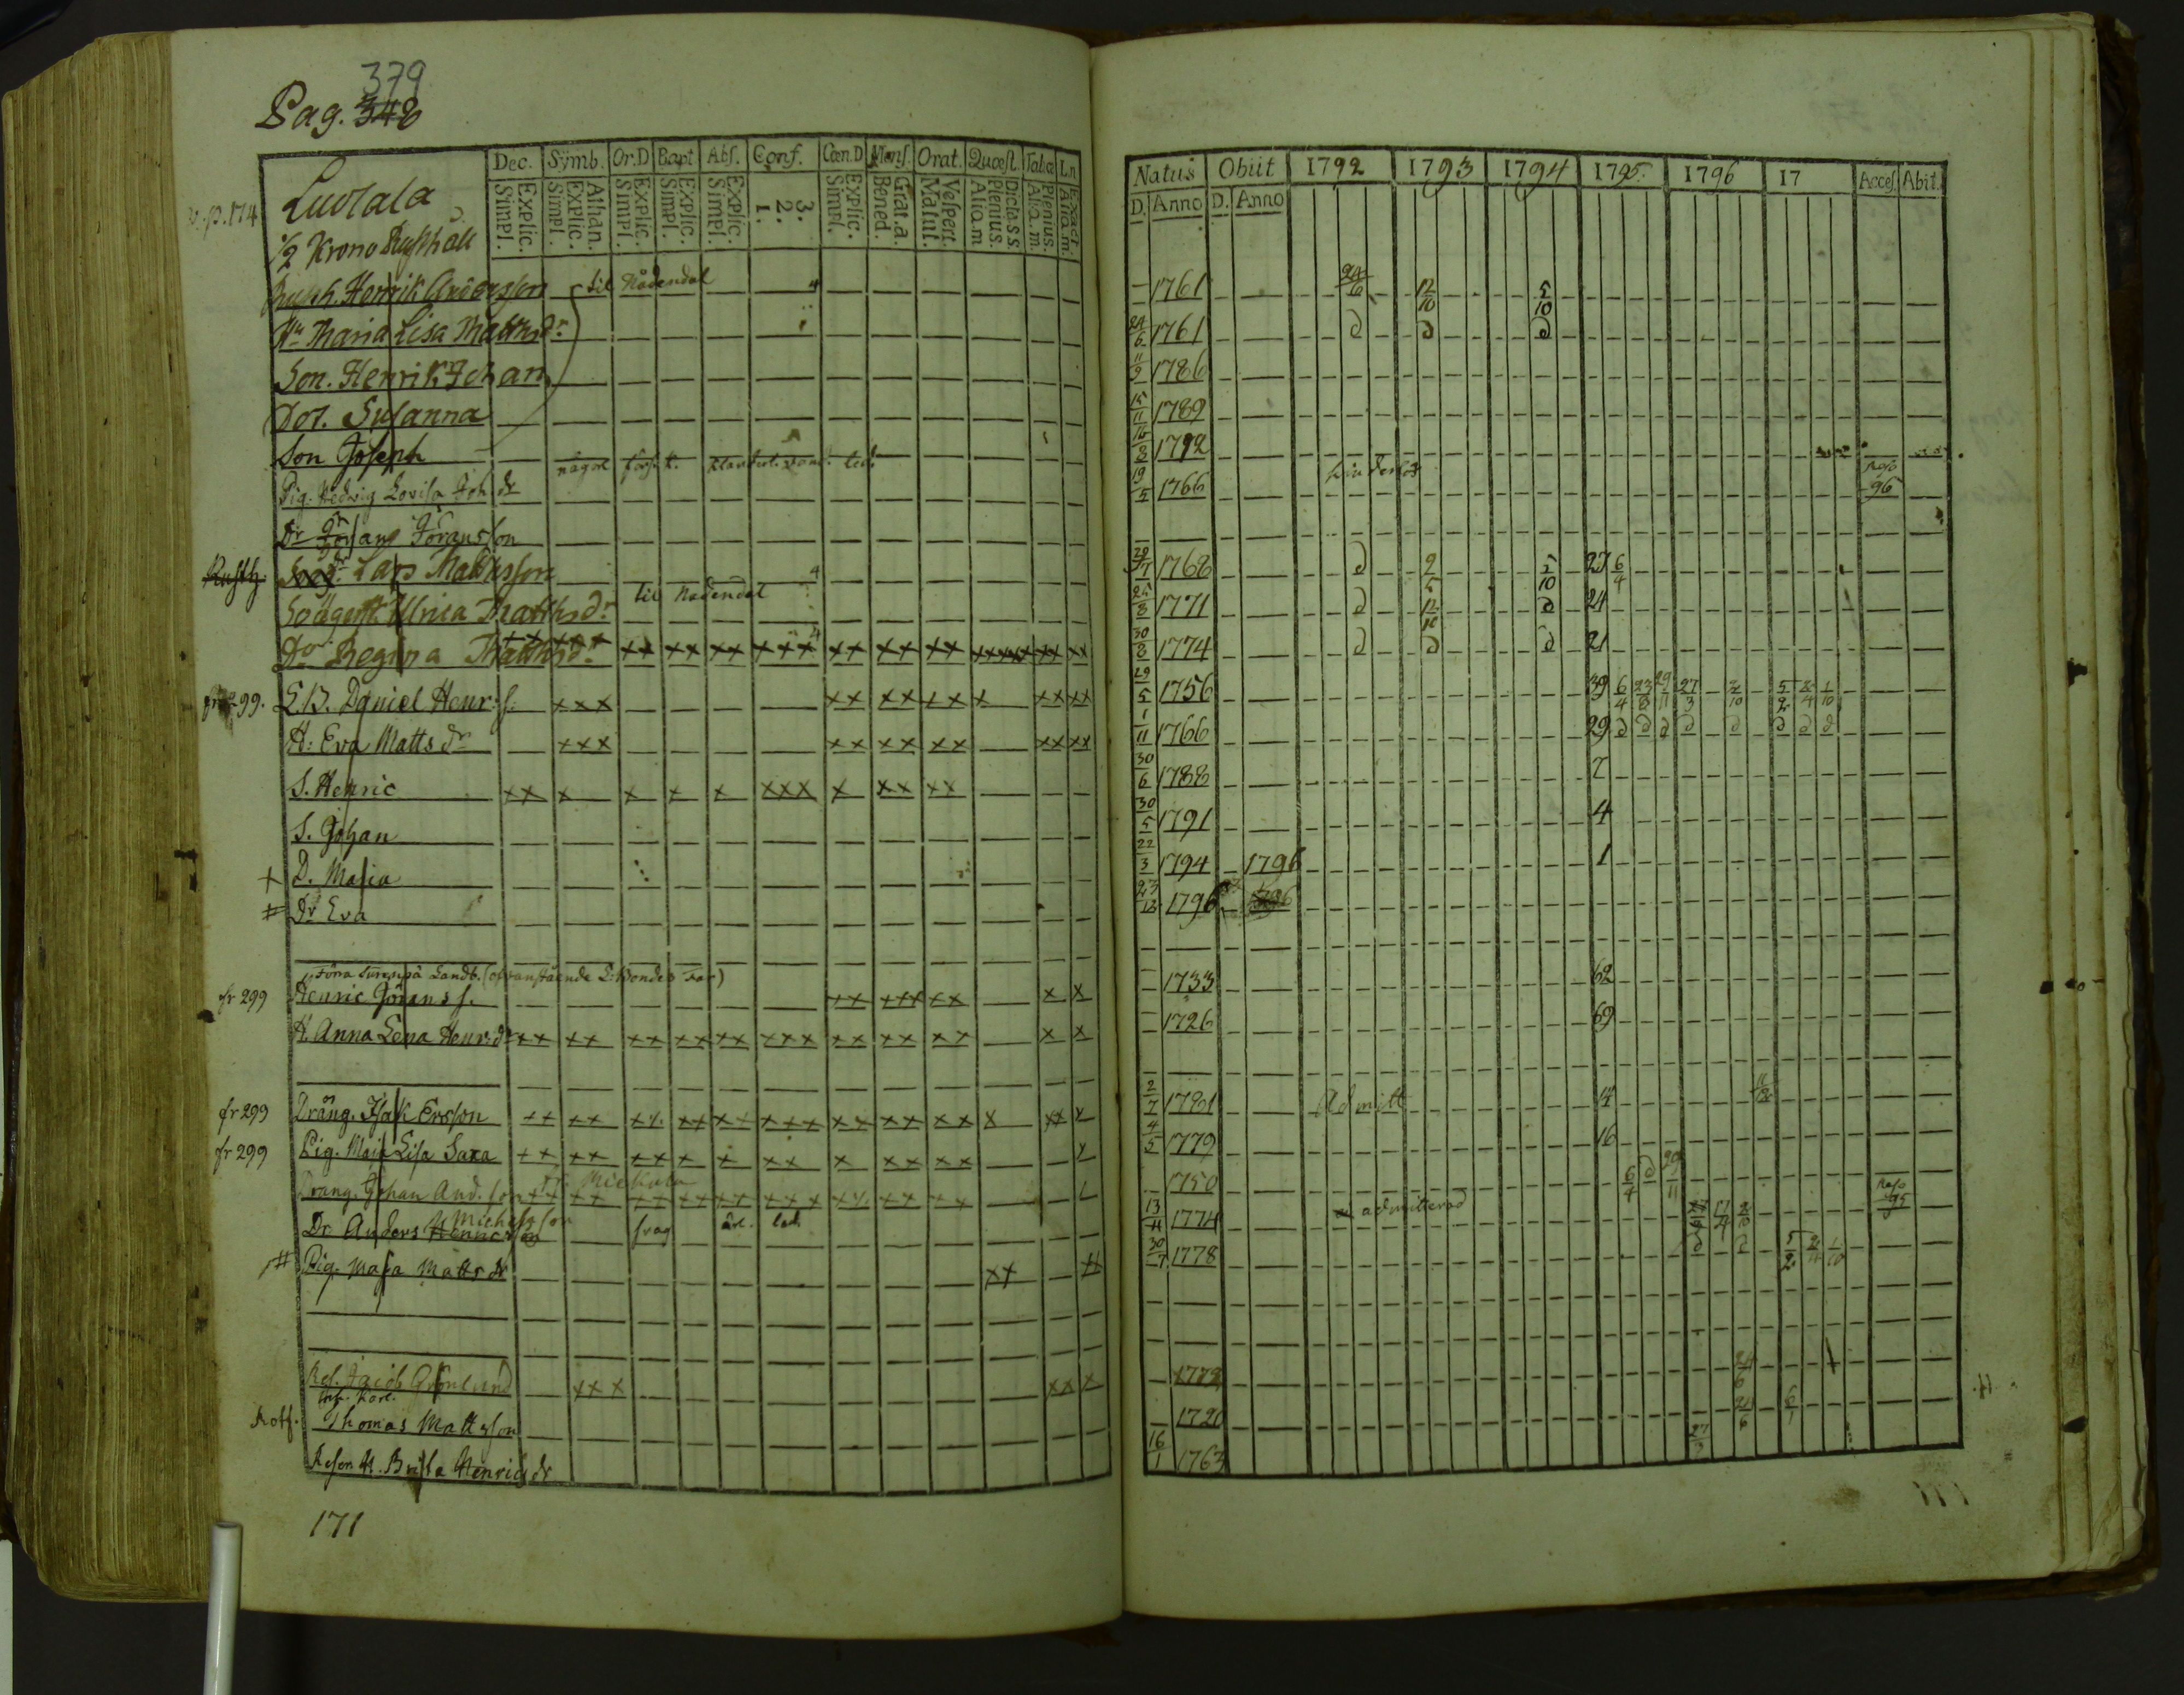 379
Pag. 348
Dec. Symb. Or.D Bapt Abs. Conf. Cœn.D Mens. Orat. Quæst. Tabæ Ln
v. p. 174 Luolala
Explic. Simpl. Athan. Explic. Simpl. Explic. Simpl. Explic. Simpl. Explic. Simpl. 3. 2. 1. Explic. Simpl. Grat.a. Bened. Vespert. Matut. Dicta s s. Plenius. Aliq.m Plenius. Aliq.m. Exact. Aliq.m.
1/2 Krono Rusthåll
Rusth. Henrik Andersson til Nådendal 4
Hu Maria Lisa Matthsdr
Son. Henrik Johan
Dot. Susanna
Son Joseph
Pig. Hedvig Lovisa Joh. dr någor förs. k.
Dr Göransson
Rusth. Lars Matthsson 4
Ulrica Matthsdr til Nådendal
Regina Matthsdr xx xx xx xxx xx xx xx xxxxx xx xx
fr 299. L.B. Daniel Henr. s. xxx xx xx xx x xx xx
H: Eva Matts dr xxx xx xx xx xx xx
S. Henric xx x x x x xxx x xx xx
S. Johan
+ D. Maria
# Dr Eva
Förra Landb. (ofvanstående L:Bondes Far)
fr 299 Henric Görans s. xx xxx xx x x
H. Anna Lena Henr. dr xx xx xx xx xx xxx xx xx xx x x
fr 299 Dräng. Isak Ersson xx xx xx xx xx xxx xx xx xx x xx x
fr 299 Pig. Maja Lisa Saxa xx xx xx x x xx x xx xx x
Dräng. Johan And. son xx xx xx xx xx xxx xx xx xx
Dr Anders Henricsson Michelsson
# Pig. Maja Matts dr xx
Ref. Jacob Grönlund xxx xx x
Inh. Karl.
Rotf. Thomas Mattsson
H. Brita Henrichsdr
171
Natus Obiit 1792 1793 1794 1795 1796 17 Acces. Abit.
D. Anno D. Anno
1761 24/6 12/10 5/10
24/6 1761 d d d
11/9 1786
15/11 1789
16/8 1792
19/5 1766 96
29/7 1768 d 9/5 5/10 27 6/4
25/8 1771 d 12/10 d 24
30/8 1774 d d d 21
29/5 1756 39 6/4 23/8 29/11 27/3 2/10 5/2 2/4 1/10
1/11 1766 29 d d d d d d d d
30/6 1788 7
30/5 1791 4
22/3 1794 1796 1
23/12 1796
1733 62
1726 69
2/7 1781 Admitt 14
4/5 1779 16
1750 6/4 d 29/11
13/11 1774 admitterad
30/7 1778 d 5/2 2/4 1/10
1772 24/6
1720 24/6
16/1 1763 27/3